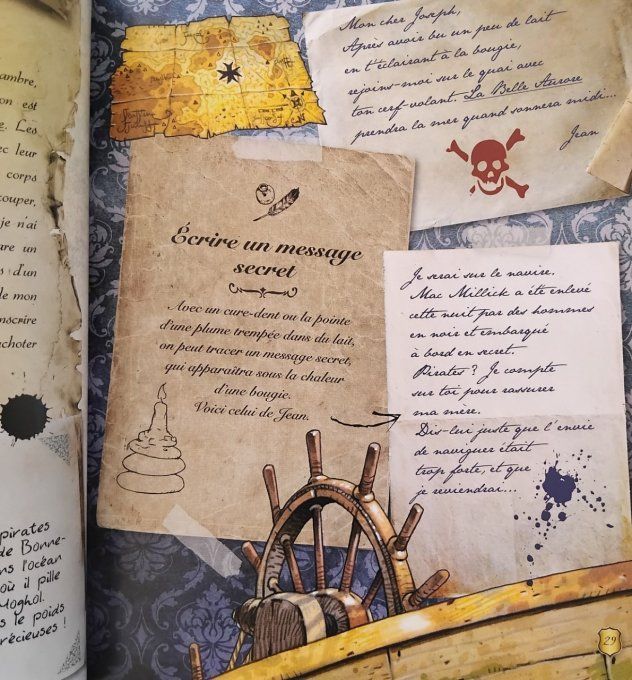 ambre,
on est
e. Les
ec leur
corps
couper,
je n'ai
are un
s d'un
de mon
nscrire
uchoter
pirates
de Bonne-
ns l'océan
où il pille
Moghol.
s le poids
récieuses !
Mon cher Joseph,
Après avoir bu un peu de lait
en t'éclairant à la bougie,
rejoins-moi sur le quai avec
ton cerf-volant. La Belle Aurore
prendra la mer quand sonnera midi...
Jean
Écrire un message
secret
Avec un cure-dent ou la pointe
d'une plume trempée dans du lait,
on peut tracer un message secret,
qui apparaîtra sous la chaleur
d'une bougie.
Voici celui de Jean.
Je serai sur le navire.
Mac Millick a été enlevé
cette nuit par des hommes
en noir et embarqué
à bord en secret.
Pirates ? Je compte
sur toi pour rassurer
ma mère.
Dis-lui juste que l'envie
de naviguer était
trop forte, et que
je reviendrai...
29